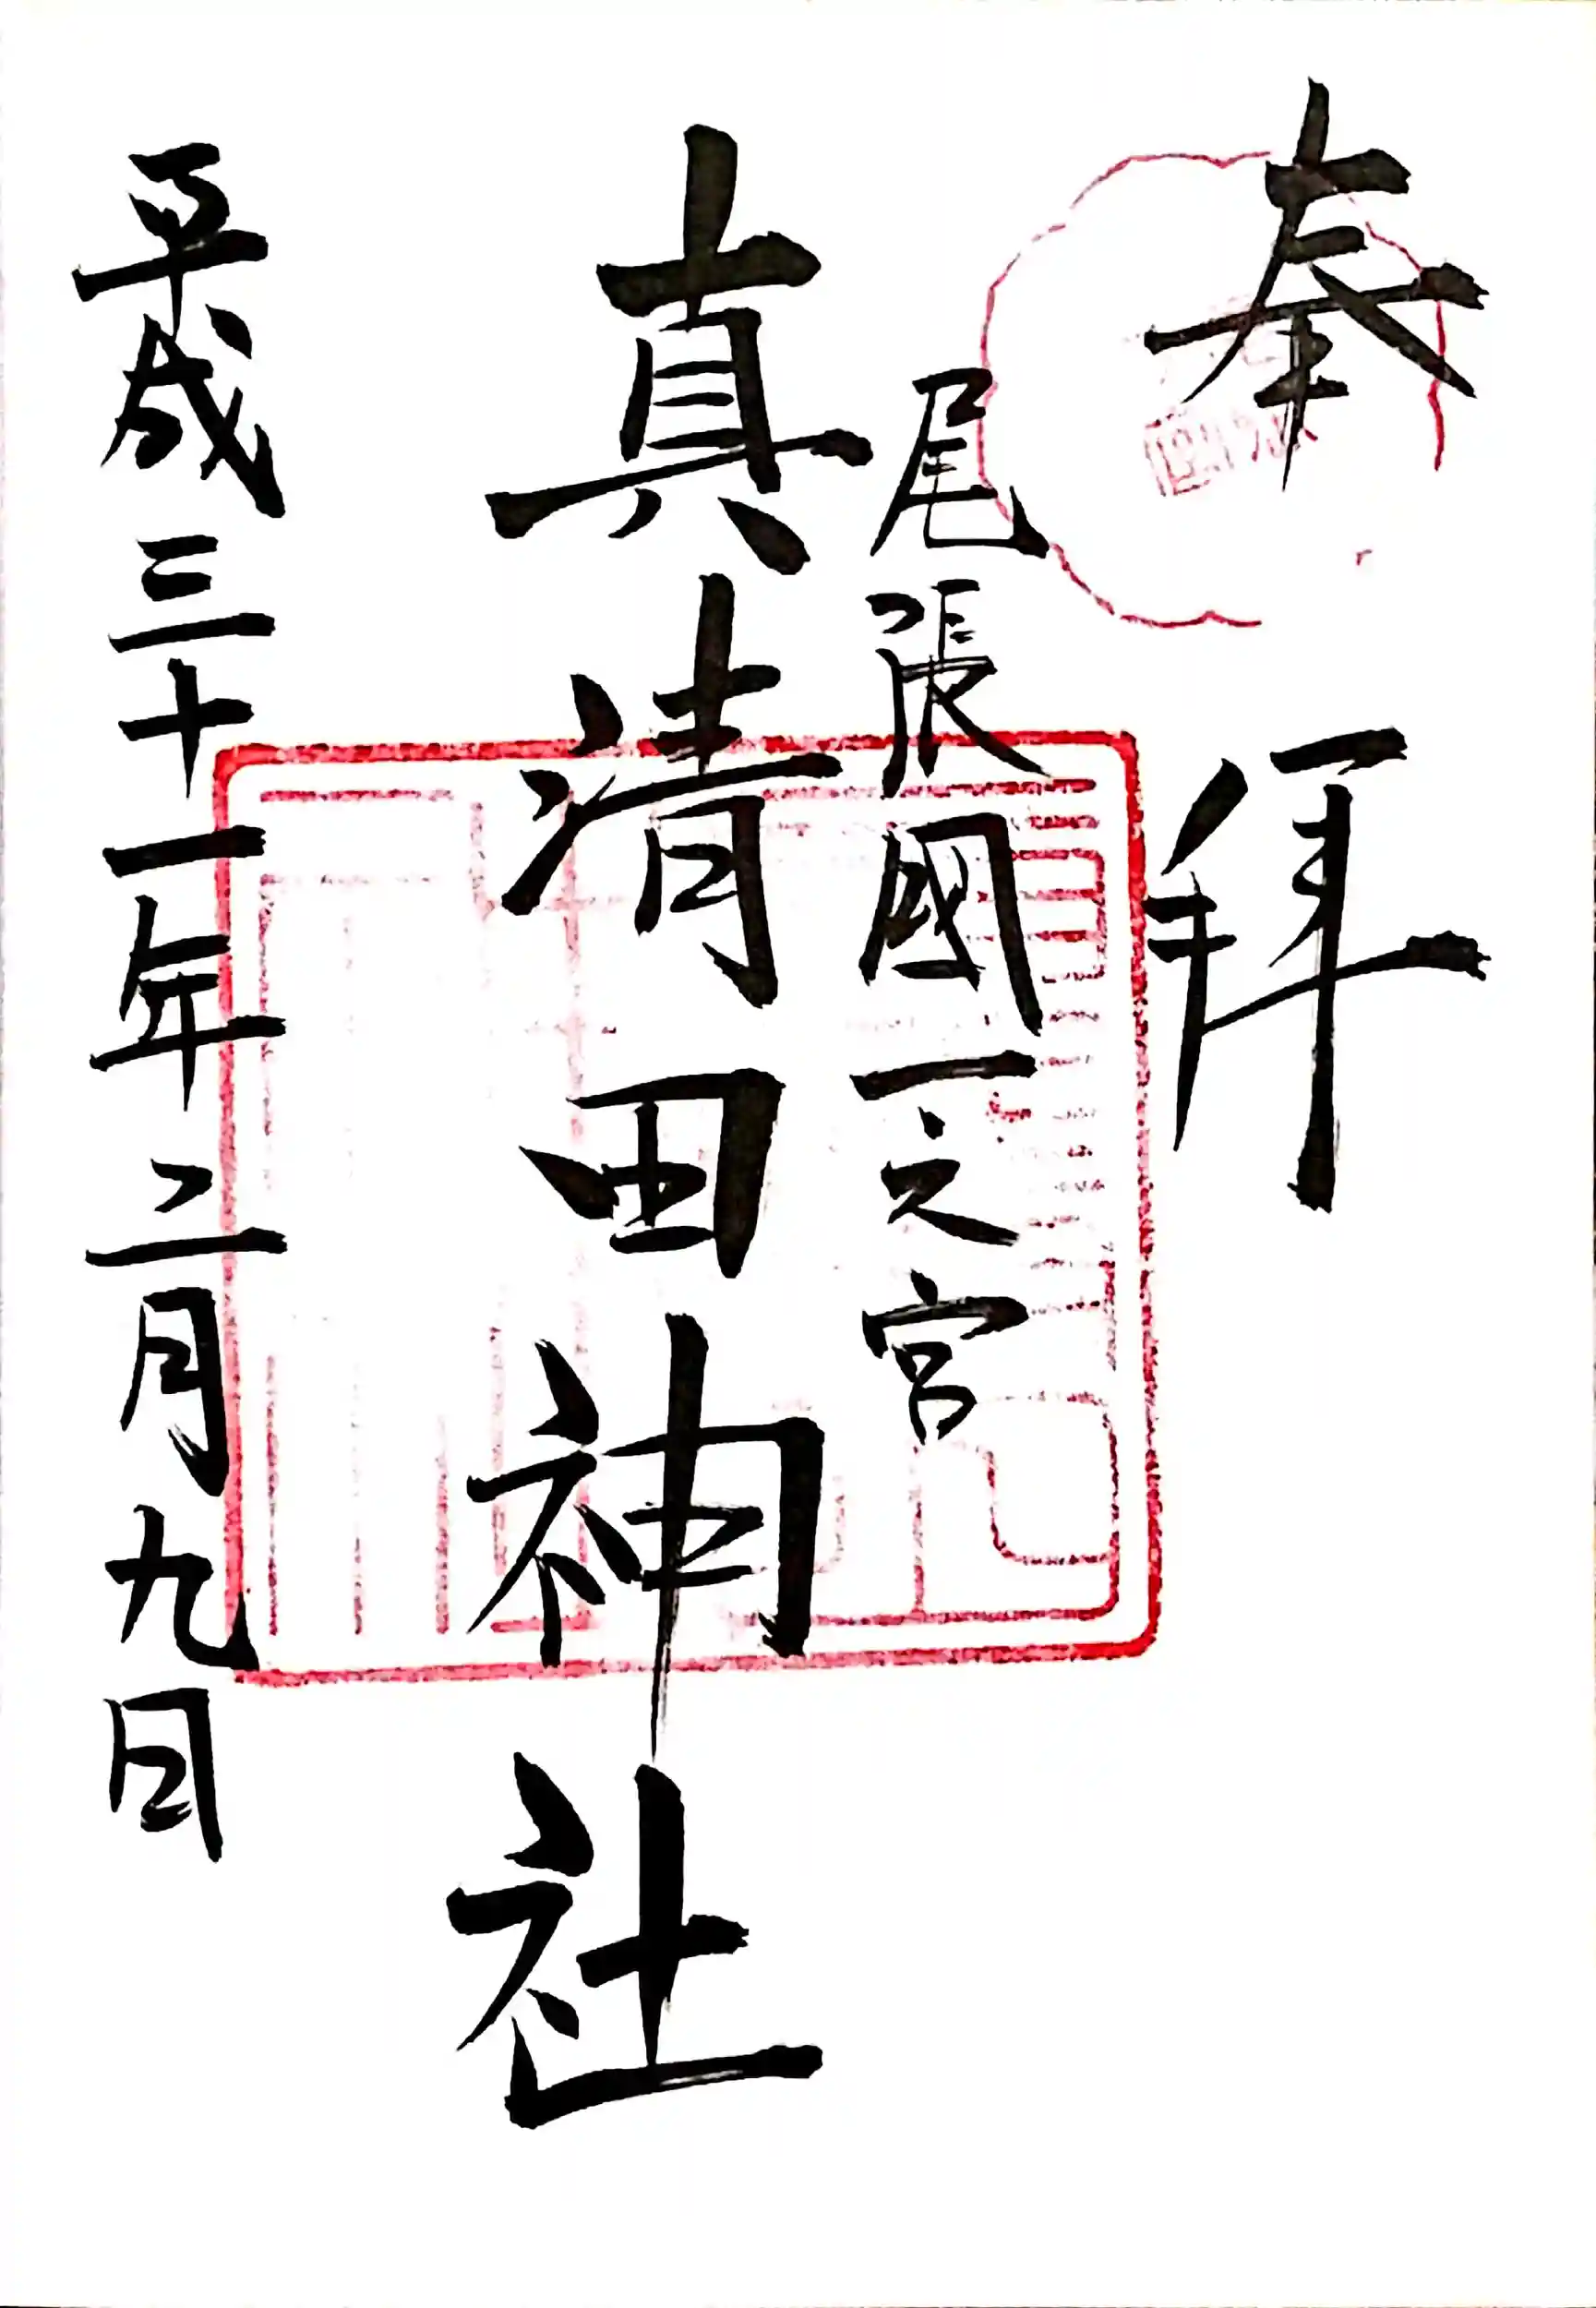 奉拝
尾張國一之宮
真清田神社
平成三十一年二月九日